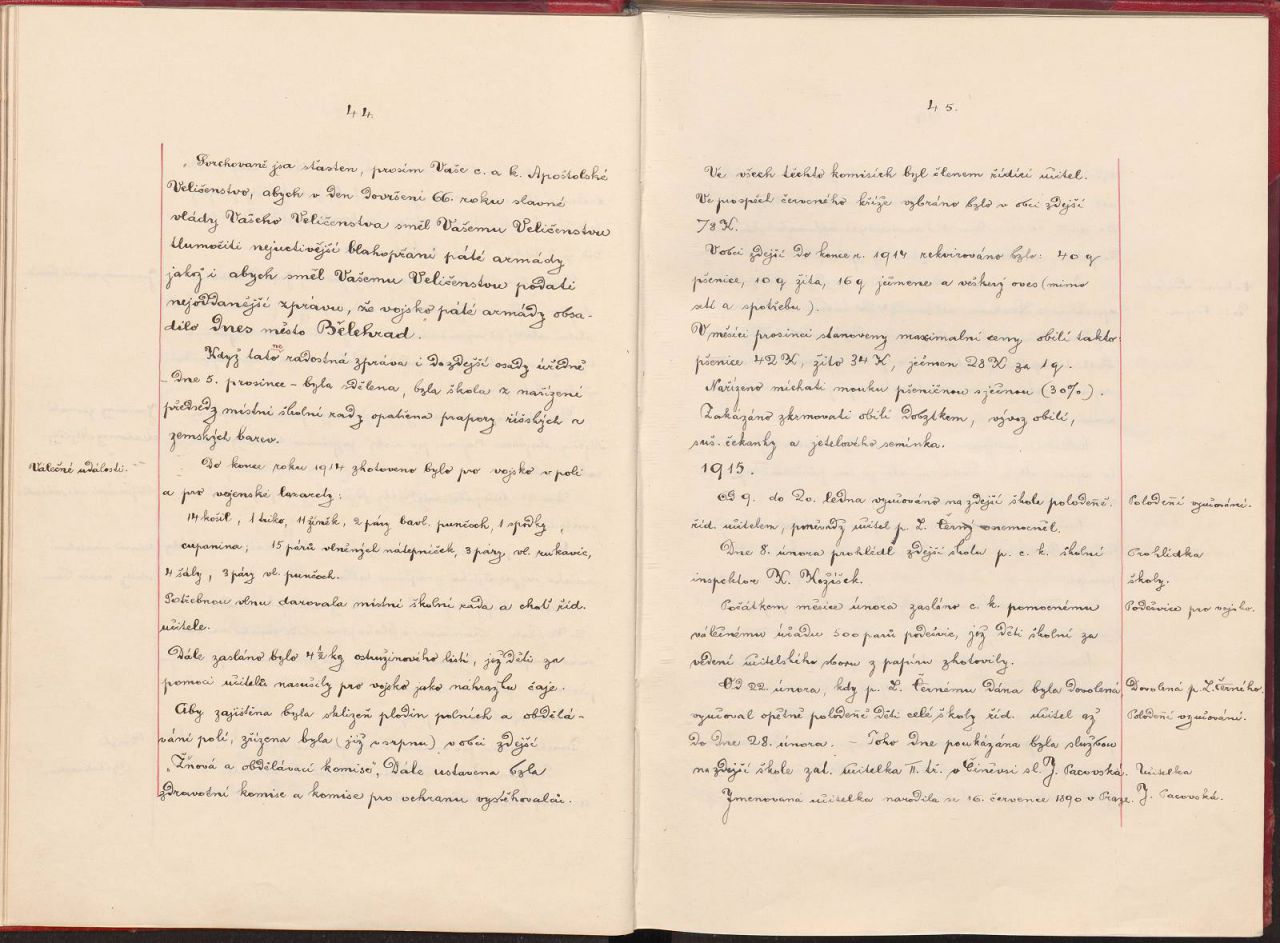 44.
„Svrchovaně jsa šťasten, prosím Vaše c. a k. Apoštolské
Veličenstvo, abych v den dovršení 66. roku slavné
vlády Vašeho Veličenstva směl Vašemu Veličenstvu
tlumočiti nejuctivější blahopřání páté armády
jakož i abych směl Vašemu Veličenstvu podati
nejoddanější zprávu, že vojsko páté armády obsa-
dilo dnes město Bělehrad.
Když tato radostná zpráva i do zdejší osady úředně
- dne 5. prosince - byla sdělena, byla škola z nařízení
předsedy místní školní rady opatřena prapory říšských a
zemských barev.
Válečné události.
Do konce roku 1914 zhotoveno bylo pro vojsko v poli
a pro vojenské lazarety:
14 košil, 1 triko, 11 žíněk, 2 páry bavl. punčoch, 1 spodky,
cupanina; 15 párů vlněných nátepniček, 3 páry vl. rukavic,
4 šály, 3 páry vl. punčoch.
Potřebnou vlnu darovala místní školní rada a choť říd.
učitele.
Dále zasláno bylo 4½ kg ostružinového listí, jež děti za
pomoci učitelů nasušily pro vojsko jako náhražku čaje.
Aby zajištěna byla sklizeň plodin polních a obdělá-
vání polí, zřízena byla (již v srpnu) v obci zdejší
„Žňová a obdělávací komise", Dále ustavena byla
zdravotní komise a komise pro ochranu vystěhovalců.
45.
Ve všech těchto komisích byl členem řídící učitel.
Ve prospěch červeného kříže vybráno bylo v obci zdejší
78 K.
V obci zdejší do konce r. 1914 rekvirováno bylo: 40 q
pšenice, 10 q žita, 16 q ječmene a veškerý oves (mimo
setí a spotřebu).
V měsíci prosinci stanoveny maximalní ceny obilí takto:
pšenice 42 K, žito 34 K, ječmen 28 K za 1 q.
Nařízeno míchati mouku pšeničnou s ječnou (30%).
Zakázáno zkrmovati obilí dobytkem, vývoz obilí,
suš. čekanky a jetelového semínka.
1915.
Od 9. do 20. ledna vyučováno na zdejší škole polodenně.
Polodenní vyučování.
říd. učitelem, poněvadž učitel p. L. Černý onemocněl.
Dne 8. února prohlédl zdejší školu p. c. k. školní
Prohlídka
inspektor K. Kožíšek.
školy.
Počátkem měsíce února zasláno c. k. pomocnému
Podešvice pro vojsko.
válečnému úřadu 500 parů podešvic, jež děti školní za
vedení učitelského sboru z papíru zhotovily.
Od 22. února, kdy p. L. Černému dána byla dovolená,
Dovolená p. L. Černého.
vyučoval opětně polodenně děti celé školy říd. učitel až
Polodenní vyučování.
do dne 28. února. - Toho dne poukázána byla službou
na zdejší škole zat. učitelka II. tř. v Činěvsi sl. J. Pacovská.
Učitelka
Jmenovaná učitelka narodila se 16. července 1890 v Praze.
J. Pacovská.